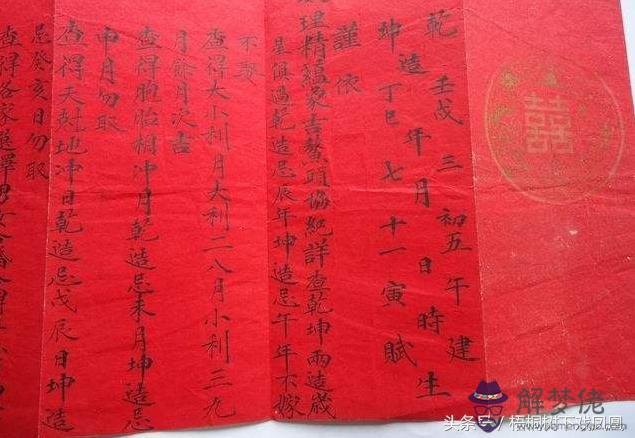 囍
乾 壬戌 三 初五 午 建
造 年 月 日 時 生
坤 丁巳 七 十一 寅 賦
謹依
理精蘊象吉鰲頭協紀詳查乾坤兩造歲
是俱過乾造忌辰年坤造忌午年不嫁
不娶
查得大小利月大利二八月小利三九
月餘月次吉
查得胞胎相冲月乾造忌未月坤造忌
申月勿取
查得天尅地冲日乾造忌戊辰日坤造
忌癸亥日勿取
查得各家選擇男女合婚
头条号/梧桐树下戏凤凰
解梦佬
www.jiemenglao.com